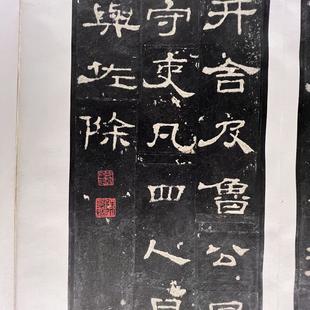 井舍及魯公冢
守吏凡四人月
與佐除